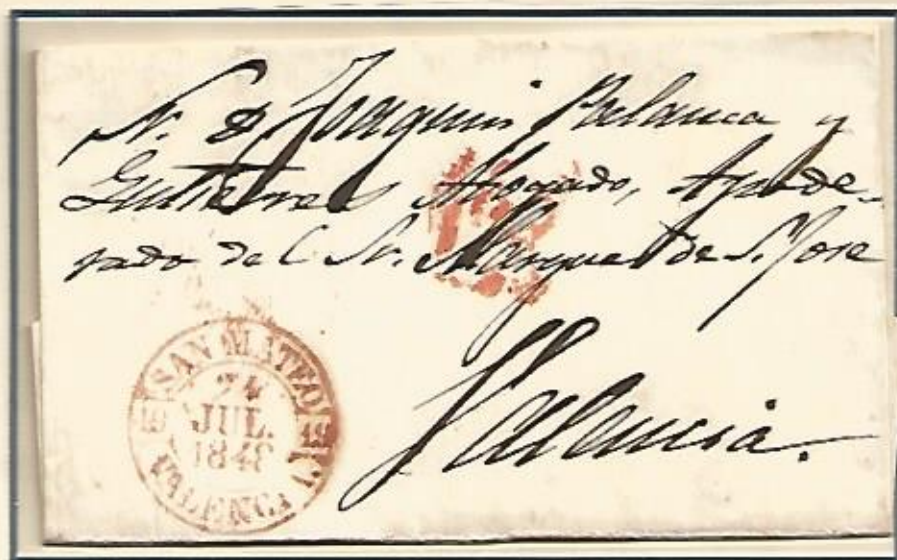 Sr. D. Joaquin Palanca y
Gutierrez Abogado, Apode-
rado del Sr. Marques de S. Jose
Valencia.
SAN MATEO
24
JUL.
1848
VALENCIA